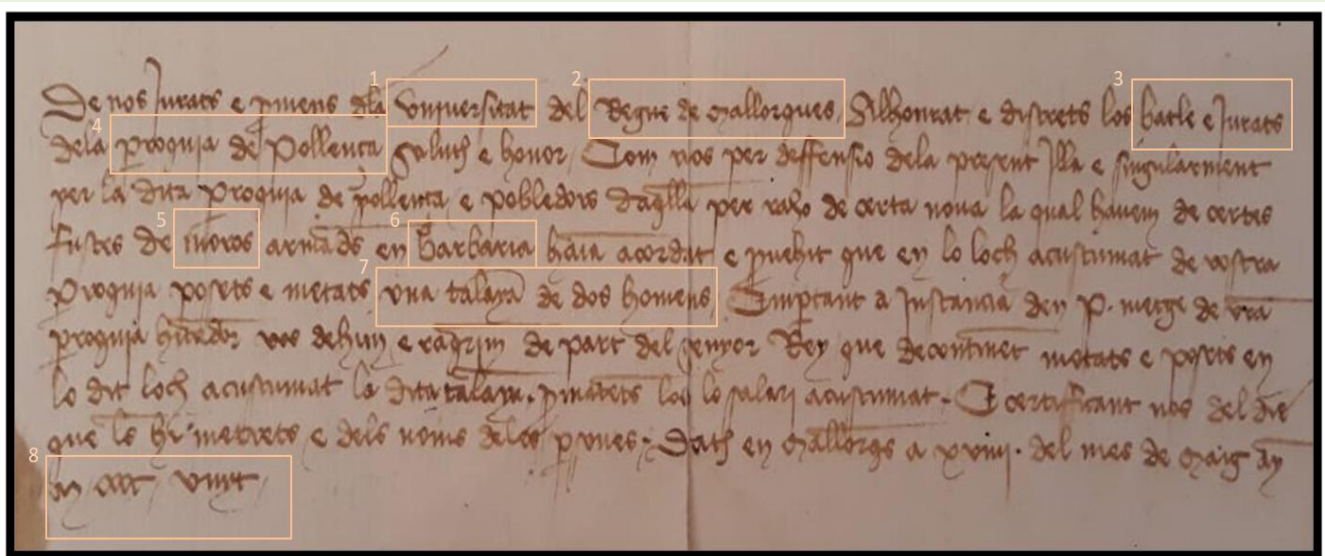 De nos Jurats e prmens dla Vniuersitat del Regne de Mallorques Alhonrat e discrets los batle e Jurats
dela proquia de Pollença saluts e honor Com nos per deffensio dela present Illa e singularment
per la dita proquia de pollença e pobledors daqlla per raho de certa noua la qual hauem de certes
fustes de moros armads en Barbaria haia acordat e puehit que en lo loch acustumat de vostra
proquia posets e metats vna talaya de dos homens E mptant a Instancia den P. metge de vra
proquia hitador vos dehim e raqrim de part del senyor Rey que decontinet metats e posets en
lo dit loch acustumat la dita talaya. pmatets los lo salari acustumat. E certifficant nos del die
que ls hi metrets e dels noms deles psones. Dats en Mallorqs a xviiij. del mes de Maig
1
2
3
4
5
6
7
8